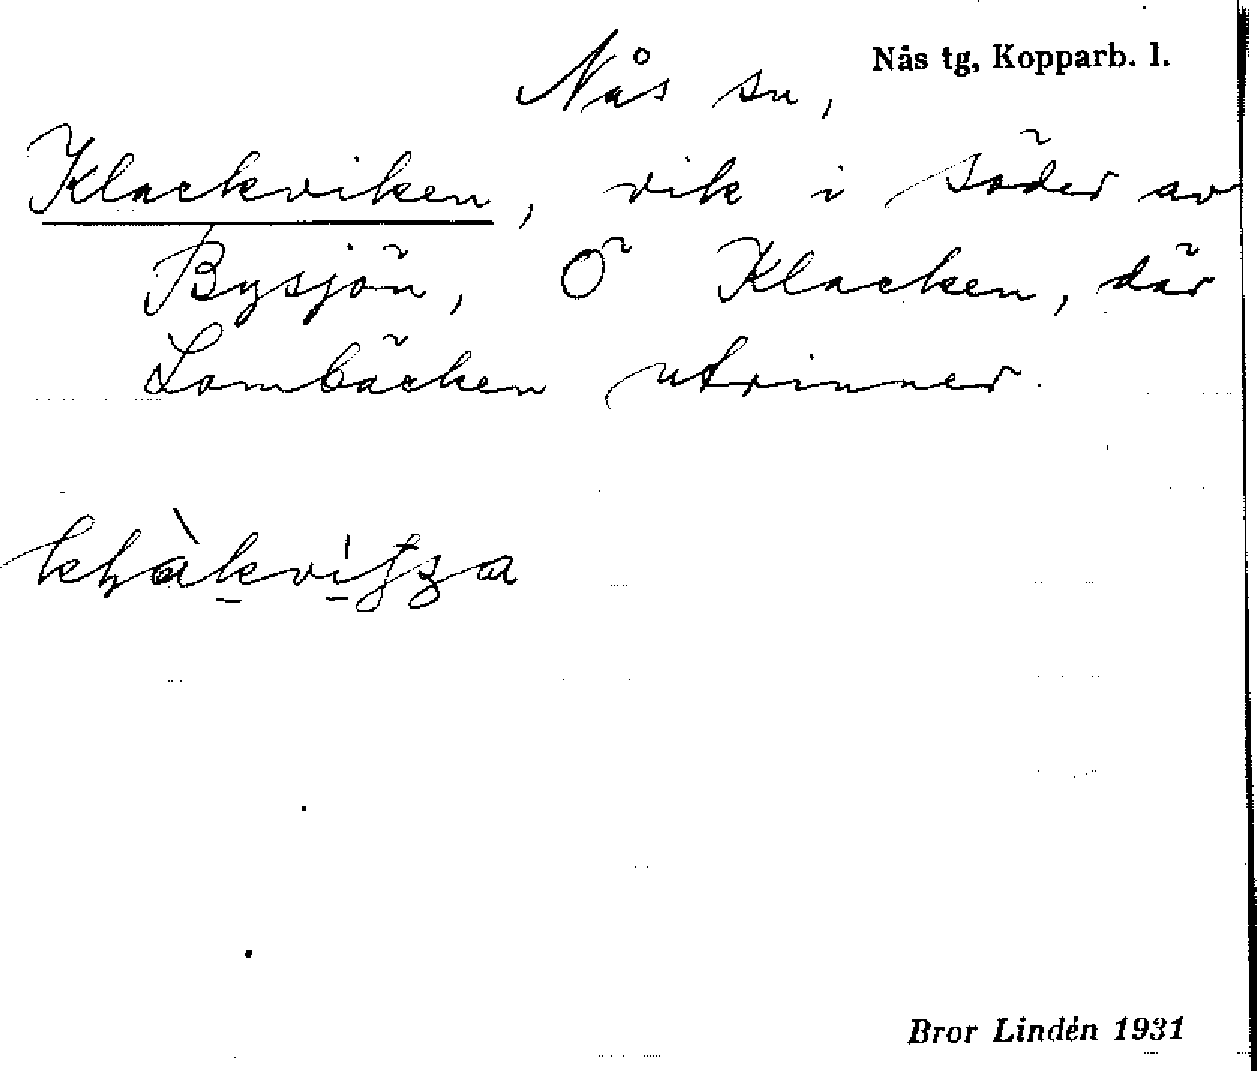 Nås tg, Kopparb. l.
Nås sn,
Klackviken, vik i söder av
Bysjön, Ö Klacken, där
Lombäcken utrinner.
Bror Lindén 1931